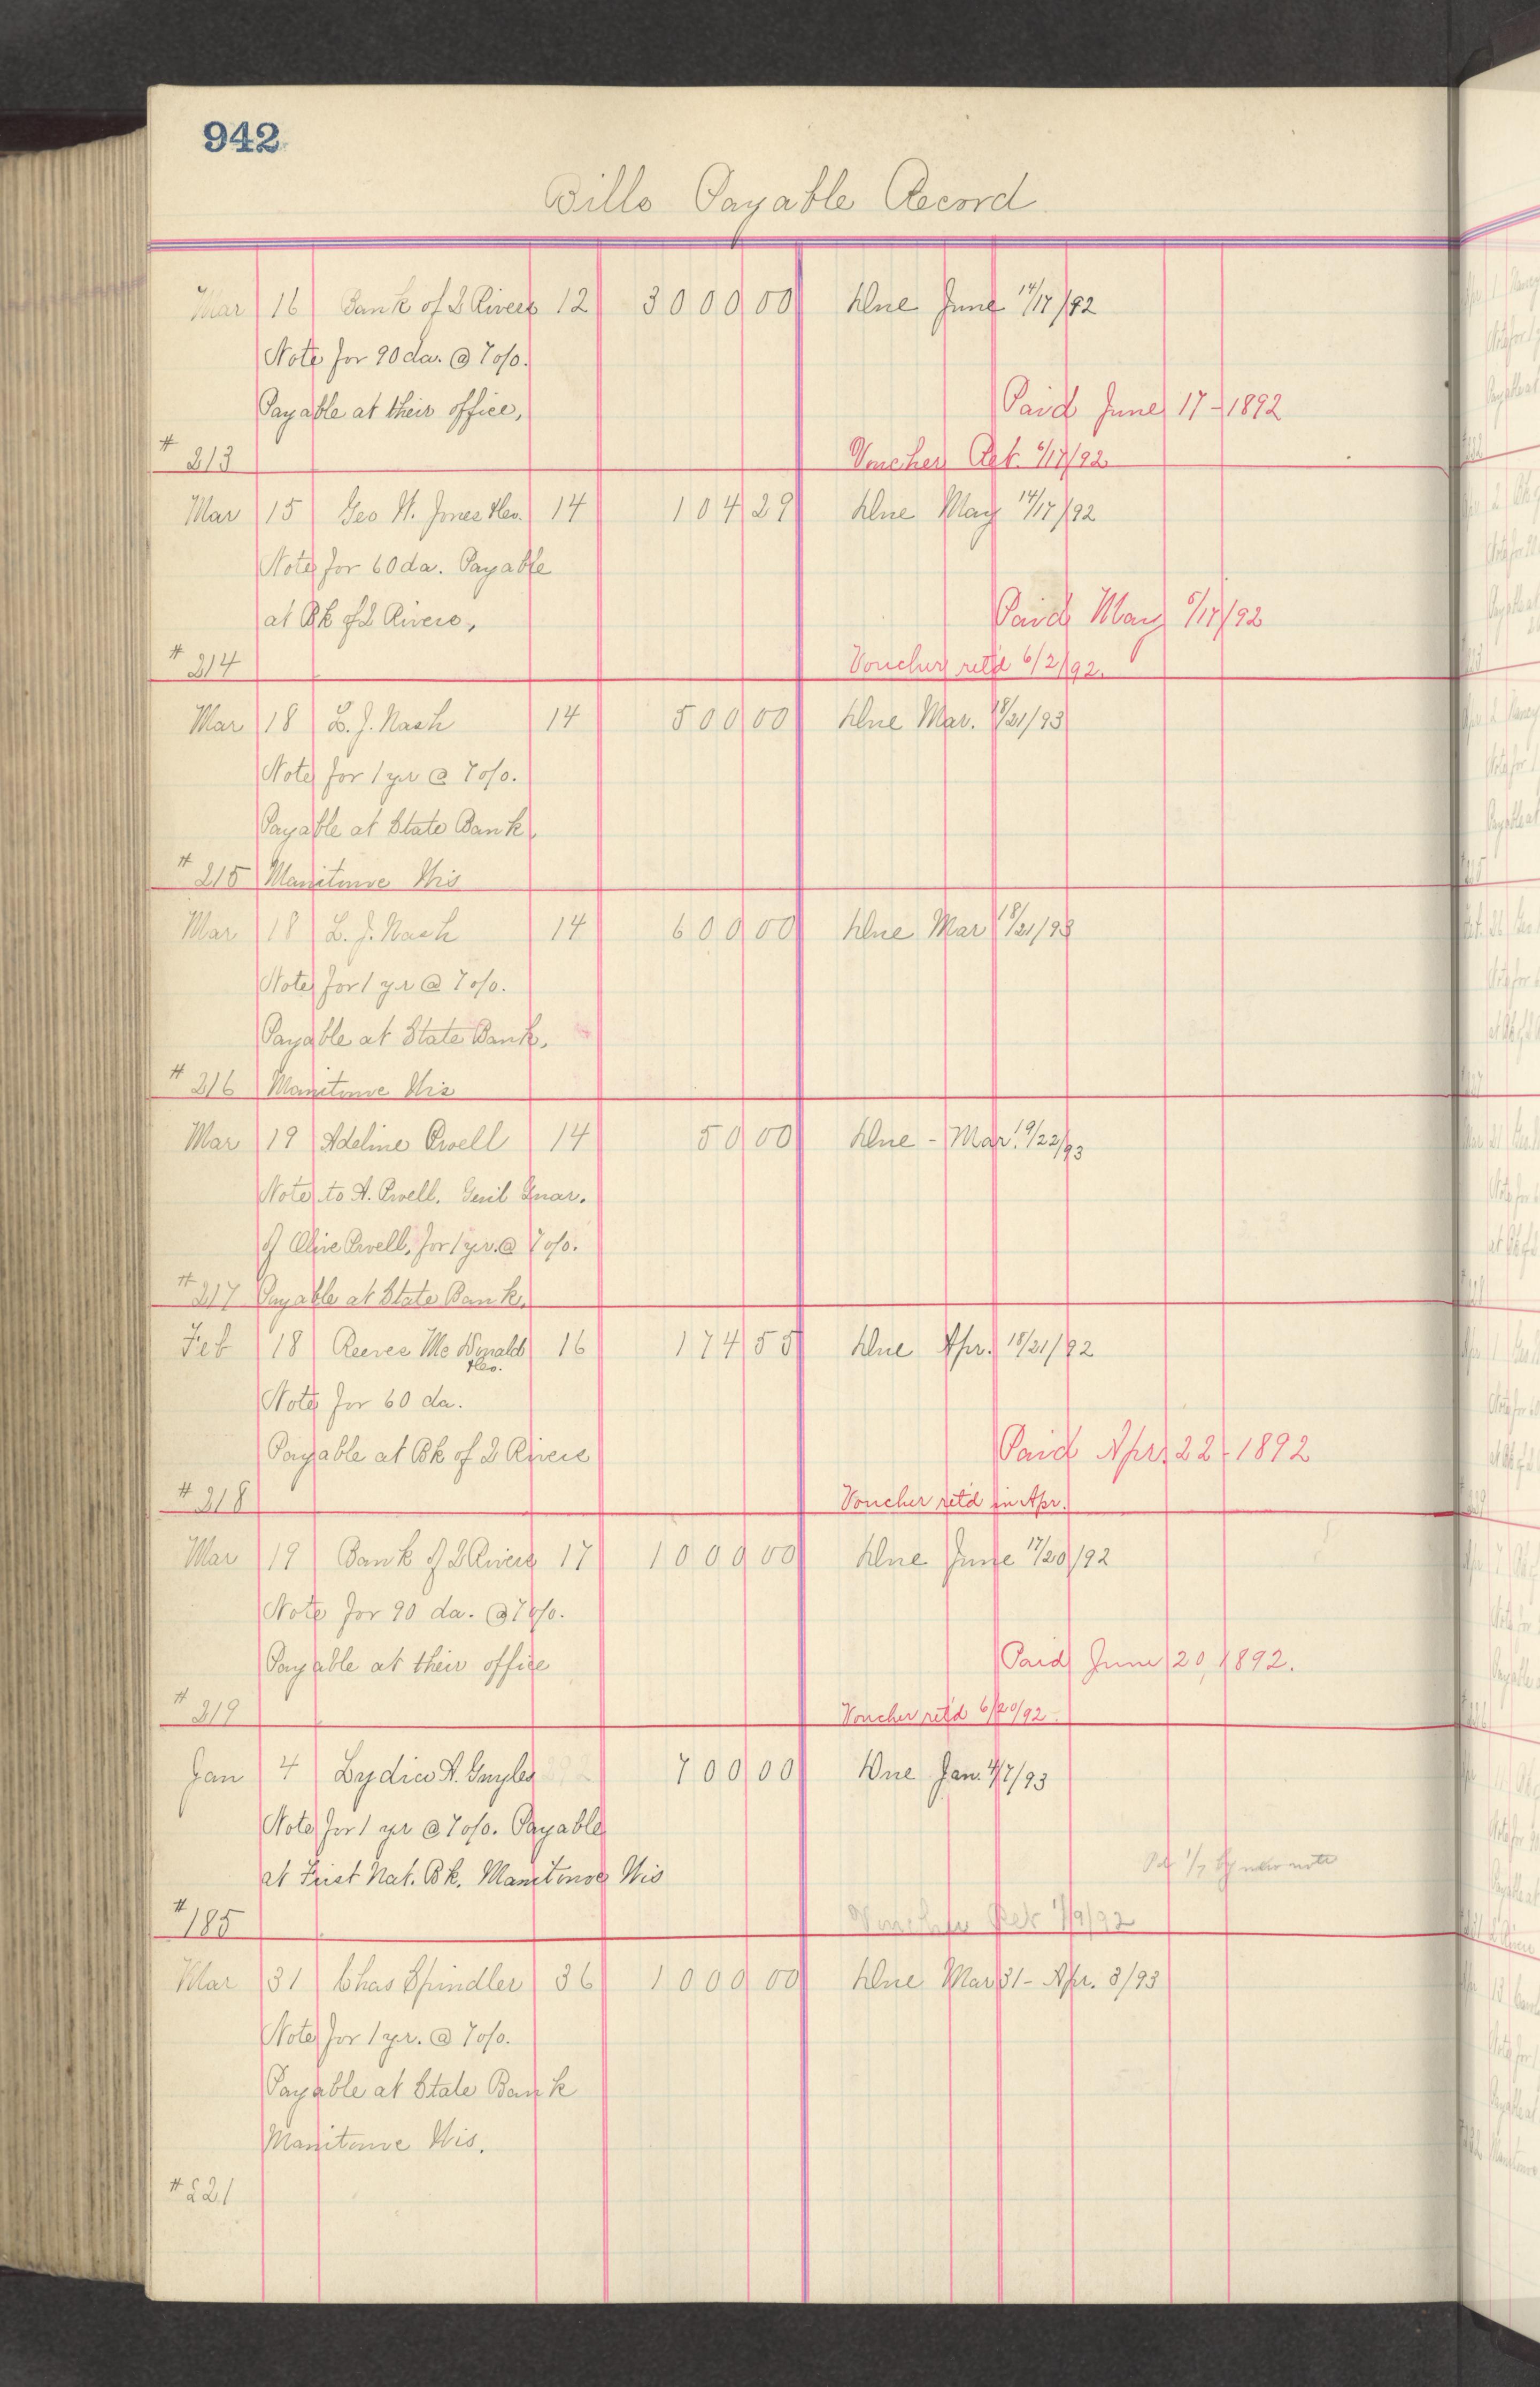 942
Bills Payable Record
Mar 16 Bank of 2 Rivers 12 3000 00 Due June 14/17/92
Note for 90 da. @ 7 o/o.
Payable at their office, Paid June 17 - 1892
# 213 Voucher Ret. 6/17/92
Mar 15 Geo W. Jones & Co. 14 104 29 Due May 14/17/92
Note for 60 da. Payable
at Bk of 2 Rivers, Paid May 5/17/92
# 214 Voucher ret'd 6/2/92.
Mar 18 L. J. Nash 14 500 00 Due Mar. 18/21/93
Note for 1 yr @ 7 o/o.
Payable at State Bank
# 215 Manitowoc Wis
Mar 18 L. J. Nash 14 600 00 Due Mar 18/21/93
Note for 1 yr @ 7 o/o.
Payable at State Bank.
# 216 Manitowoc Wis
Mar 19 Adeline Orvell 14 50 00 Due - Mar. 19/22/93
Note to A. Genl Guar.
of for 1 yr. @ 7 o/o.
# 217 Payable at State Bank.
Feb 18 Reeves McDonald & Co. 16 174 55 Due Apr. 18/21/92
Note for 60 da.
Payable at Bk of 2 Rivers Paid Apr. 22 - 1892
# 218 Voucher ret'd in Apr.
Mar 19 Bank of 2 Rivers 17 1000 00 Due June 17/20/92
Note for 90 da. @ 7 o/o.
Payable at their office Paid June 20, 1892.
# 219 Voucher ret'd 6/20/92
Jan 4 Lydia A. Guyles 700 00 Due Jan. 4/7/93
Note for 1 yr @ 7 o/o. Payable
at First Nat. Bk. Manitowoc Wis Pd 1/7 by new note
# 185 Voucher Ret
Mar 31 Chas Spindler 36 1000 00 Due Mar 31 - Apr. 3/93
Note for 1 yr. @ 7 o/o.
Payable at State Bank
Manitowoc Wis.
# 221